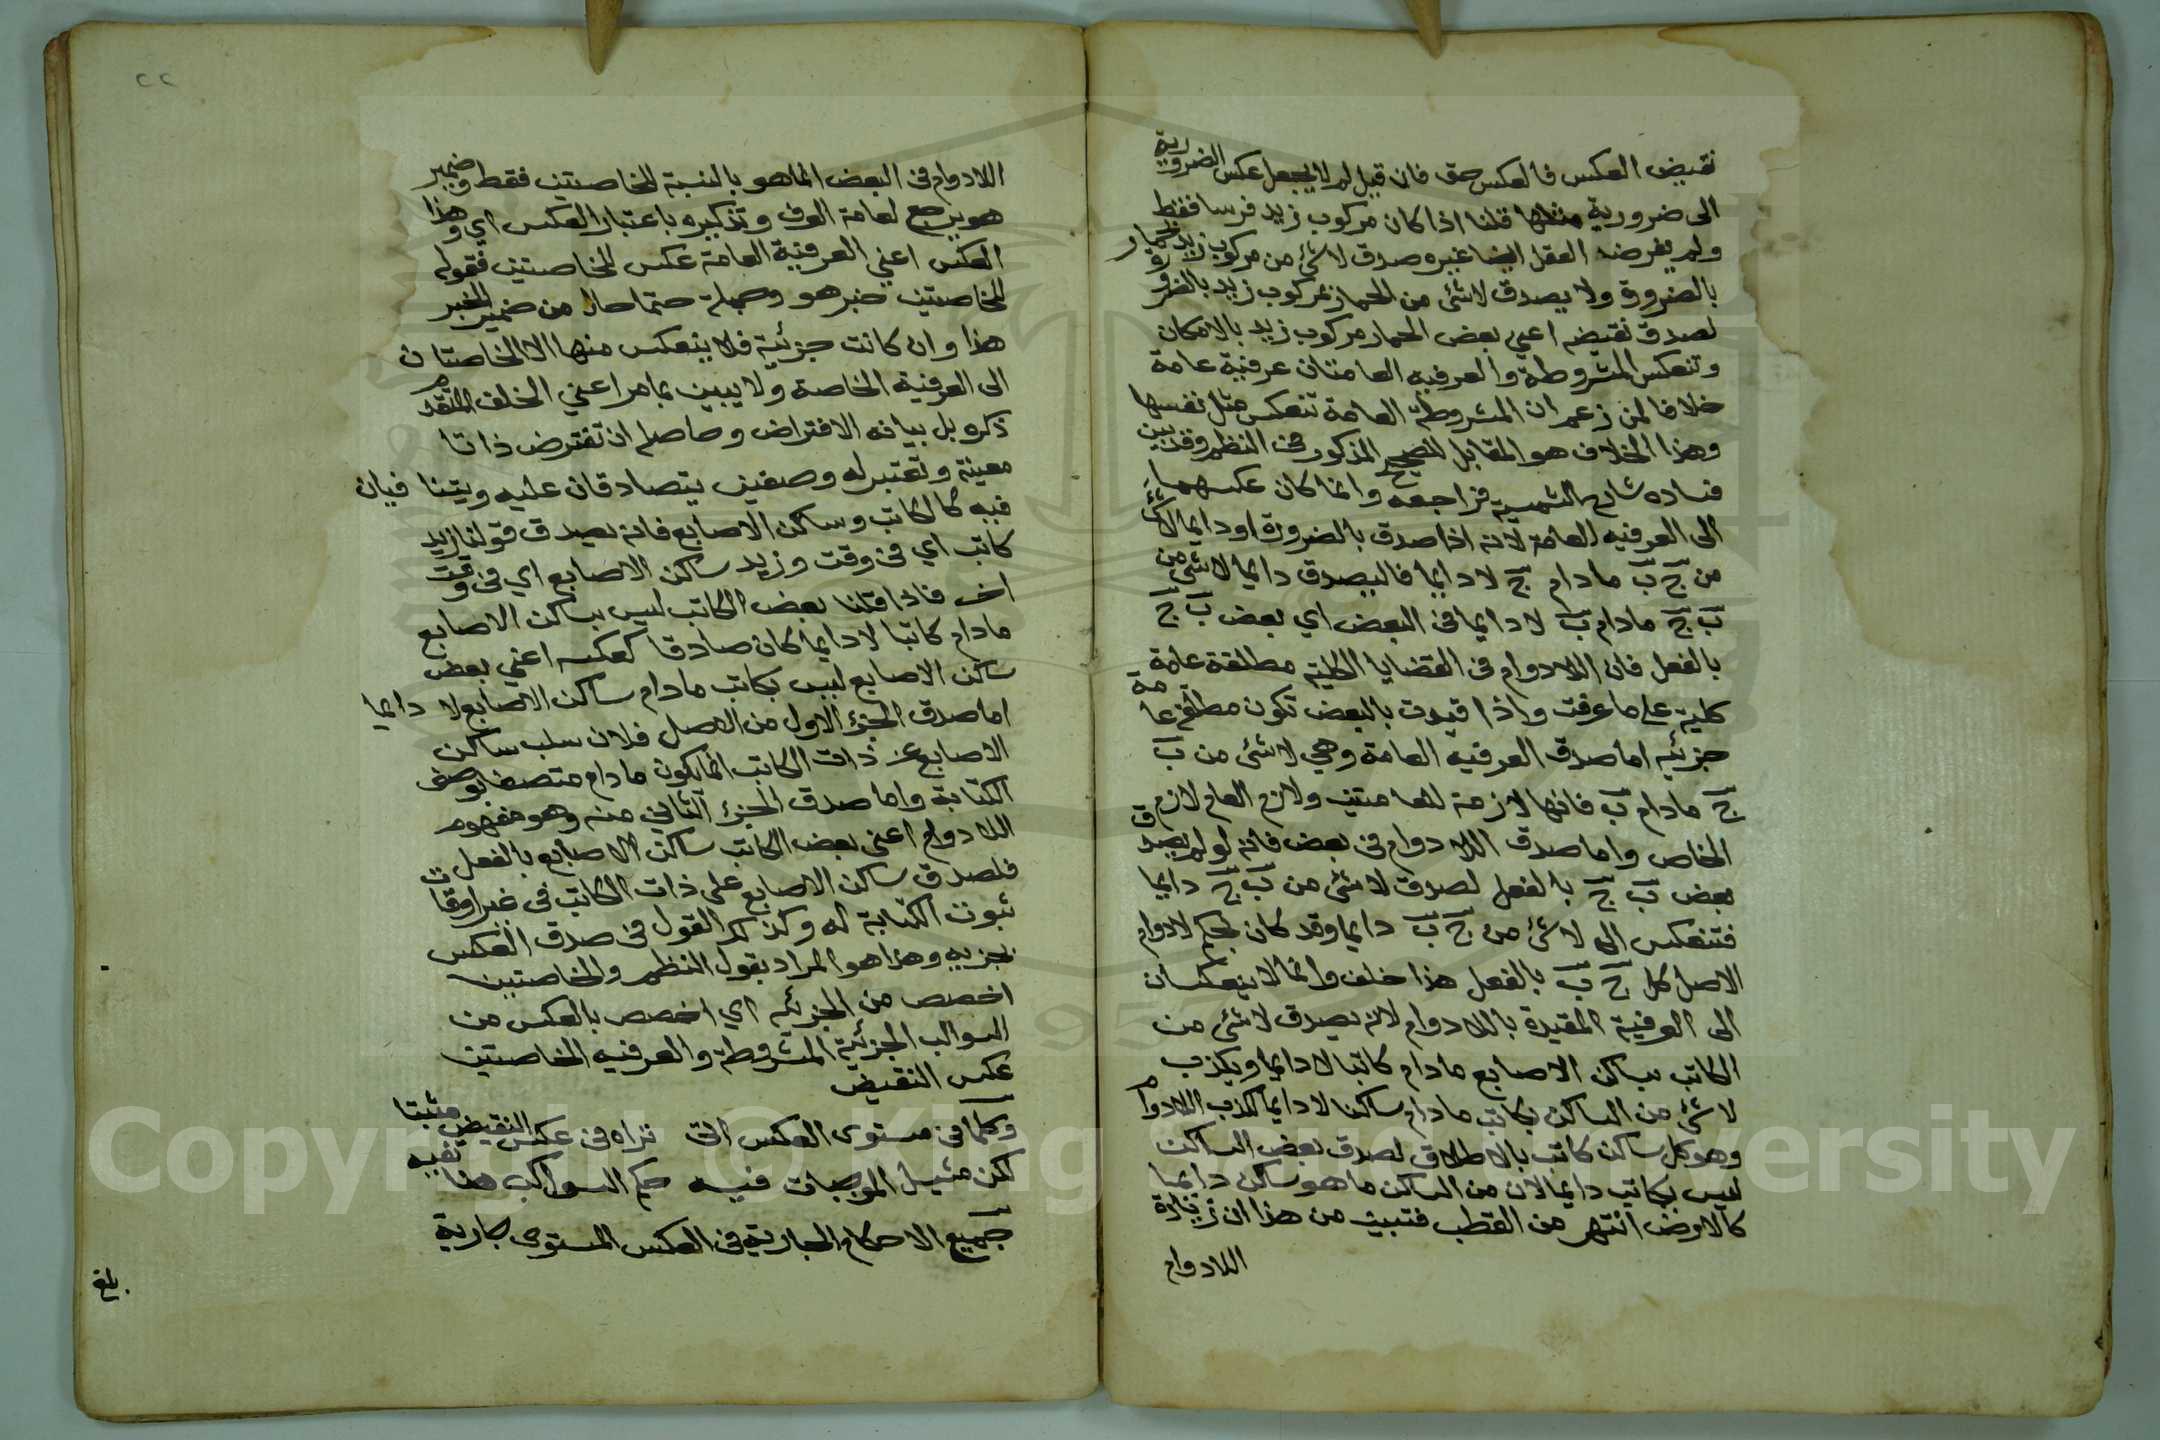 نقيض العكس فالعكس حق فان قيل لم لا يجعل عكس الضرورية
الى ضرورية مثلها قلنا اذا كان مركوب زيد فرسا فقط
ولم يفرضه العقل ايضا غيره صدق لا شئ من مركوب زيد بحمار
بالضرورة ولا يصدق لا شئ من الحمار بمركوب زيد بالضرورة
لصدق نقيضه اعني بعض الحمار مركوب زيد بالامكان
وتنعكس المشروطة والعرفيه العامتان عرفية عامة
خلافا لمن زعم ان المشروطة العامة تنعكس مثل نفسها
وهذا الخلاف هو المقابل للصحيح المذكور في النظم وقد بين
فساده شارح الشمسيه فراجعه وانما كان عكسهما
الى العرفيه العامة لانه اذا صدق بالضرورة او دايما لا شئ
من ج ب ما دام ج لا دايما فاليصدق دايما لا شئ من
ب ج مادام ب لا دايما في البعض اي بعض ب ج
بالفعل فان اللادوام في القضايا الكلية مطلقة عامة
كلية على ما عرفت واذا قيدت بالبعض تكون مطلقة عامة
جزئيه اما صدق العرفيه العامة وهي لا شئ من ب
ج مادام ب فانها لازمة للعامتين ولازم العام لازم
الخاص واما صدق اللادوام في بعض فانه لو لم يصدق
بعض ب ج بالفعل لصدق لا شئ من ب ج دايما
فتنعكس الى لا شئ من ج ب دايما وقد كان بحكم لا دوام
الاصل كل ج ب بالفعل هذا خلف وانما لا ينعكسان
الى العرفية المقيدة باللادوام لانه يصدق لا شئ من
الكاتب بساكن الاصابع مادام كاتبا لا دايما ويكذب
لا شئ من الساكن بكاتب مادام ساكنا لا دايما لكذب اللادوام
وهو كل ساكن كاتب بالاطلاق لصدق بعض الساكن
ليس بكاتب دايما لان من الساكن ما هو ساكن دايما
كالارض انتهى من القطب فتبين من هذا ان زيادة
اللادوام
٢٢
اللادوام في البعض انما هو بالنسبة للخاصيتين فقط وضمير
هو يرجع لعامة العرف وتذكيره باعتبار العكس اي وهذا
العكس اعني العرفية العامة عكس للخاصيتين فقوله
للخاصيتين خبر هو وجملة حتما حال من ضمير الخبر
هذا وان كانت جزئية فلا ينعكس منها الا الخاصتان
الى العرفية الخاصة ولا يبين بما مر اعني الخلف المتقدم
ذكره بل بيانه الافتراض وحاصله ان تفترض ذاتا
معينة وتعتبر له وصفين يتصادقان عليه ويتنافيان
فيه كالكاتب وساكن الاصابع فانه يصدق قولنا زيد
كاتب اي في وقت وزيد ساكن الاصابع اي في وقت
اخر فاذا قلنا بعض الكاتب ليس بساكن الاصابع
مادام كاتبا لا دايما كان صادقا كعكسه اعني بعض
ساكن الاصابع ليس بكاتب مادام ساكن الاصابع لا دايما
اما صدق الجزء الاول من الاصل فلان سلب ساكن
الاصابع عن ذات الكاتب انما يكون مادام متصفا بوصف
الكتابة واما صدق الجزء الثاني منه وهو مفهوم
اللادوام اعني بعض الكاتب ساكن الاصابع بالفعل
فلصدق ساكن الاصابع على ذات الكاتب في غير اوقات
ثبوت الكتابة له وكذلك القول في صدق العكس
بجزييه وهذا هو المراد بقول النظم والخاصتين
اخصص من الجزئيه اي اخصص بالعكس من
السوالب الجزئية المشروطة والعرفيه الخاصتين
عكس النقيض
وكلما في مستوى العكس اتى نراه في عكس النقيض مثبتا
لكن مثيل الموجبات فيه حكم السوالب هنا تفيه
جميع الاحكام الجارية في العكس المستوى جارية
بلغ
Copyright © King Saud University